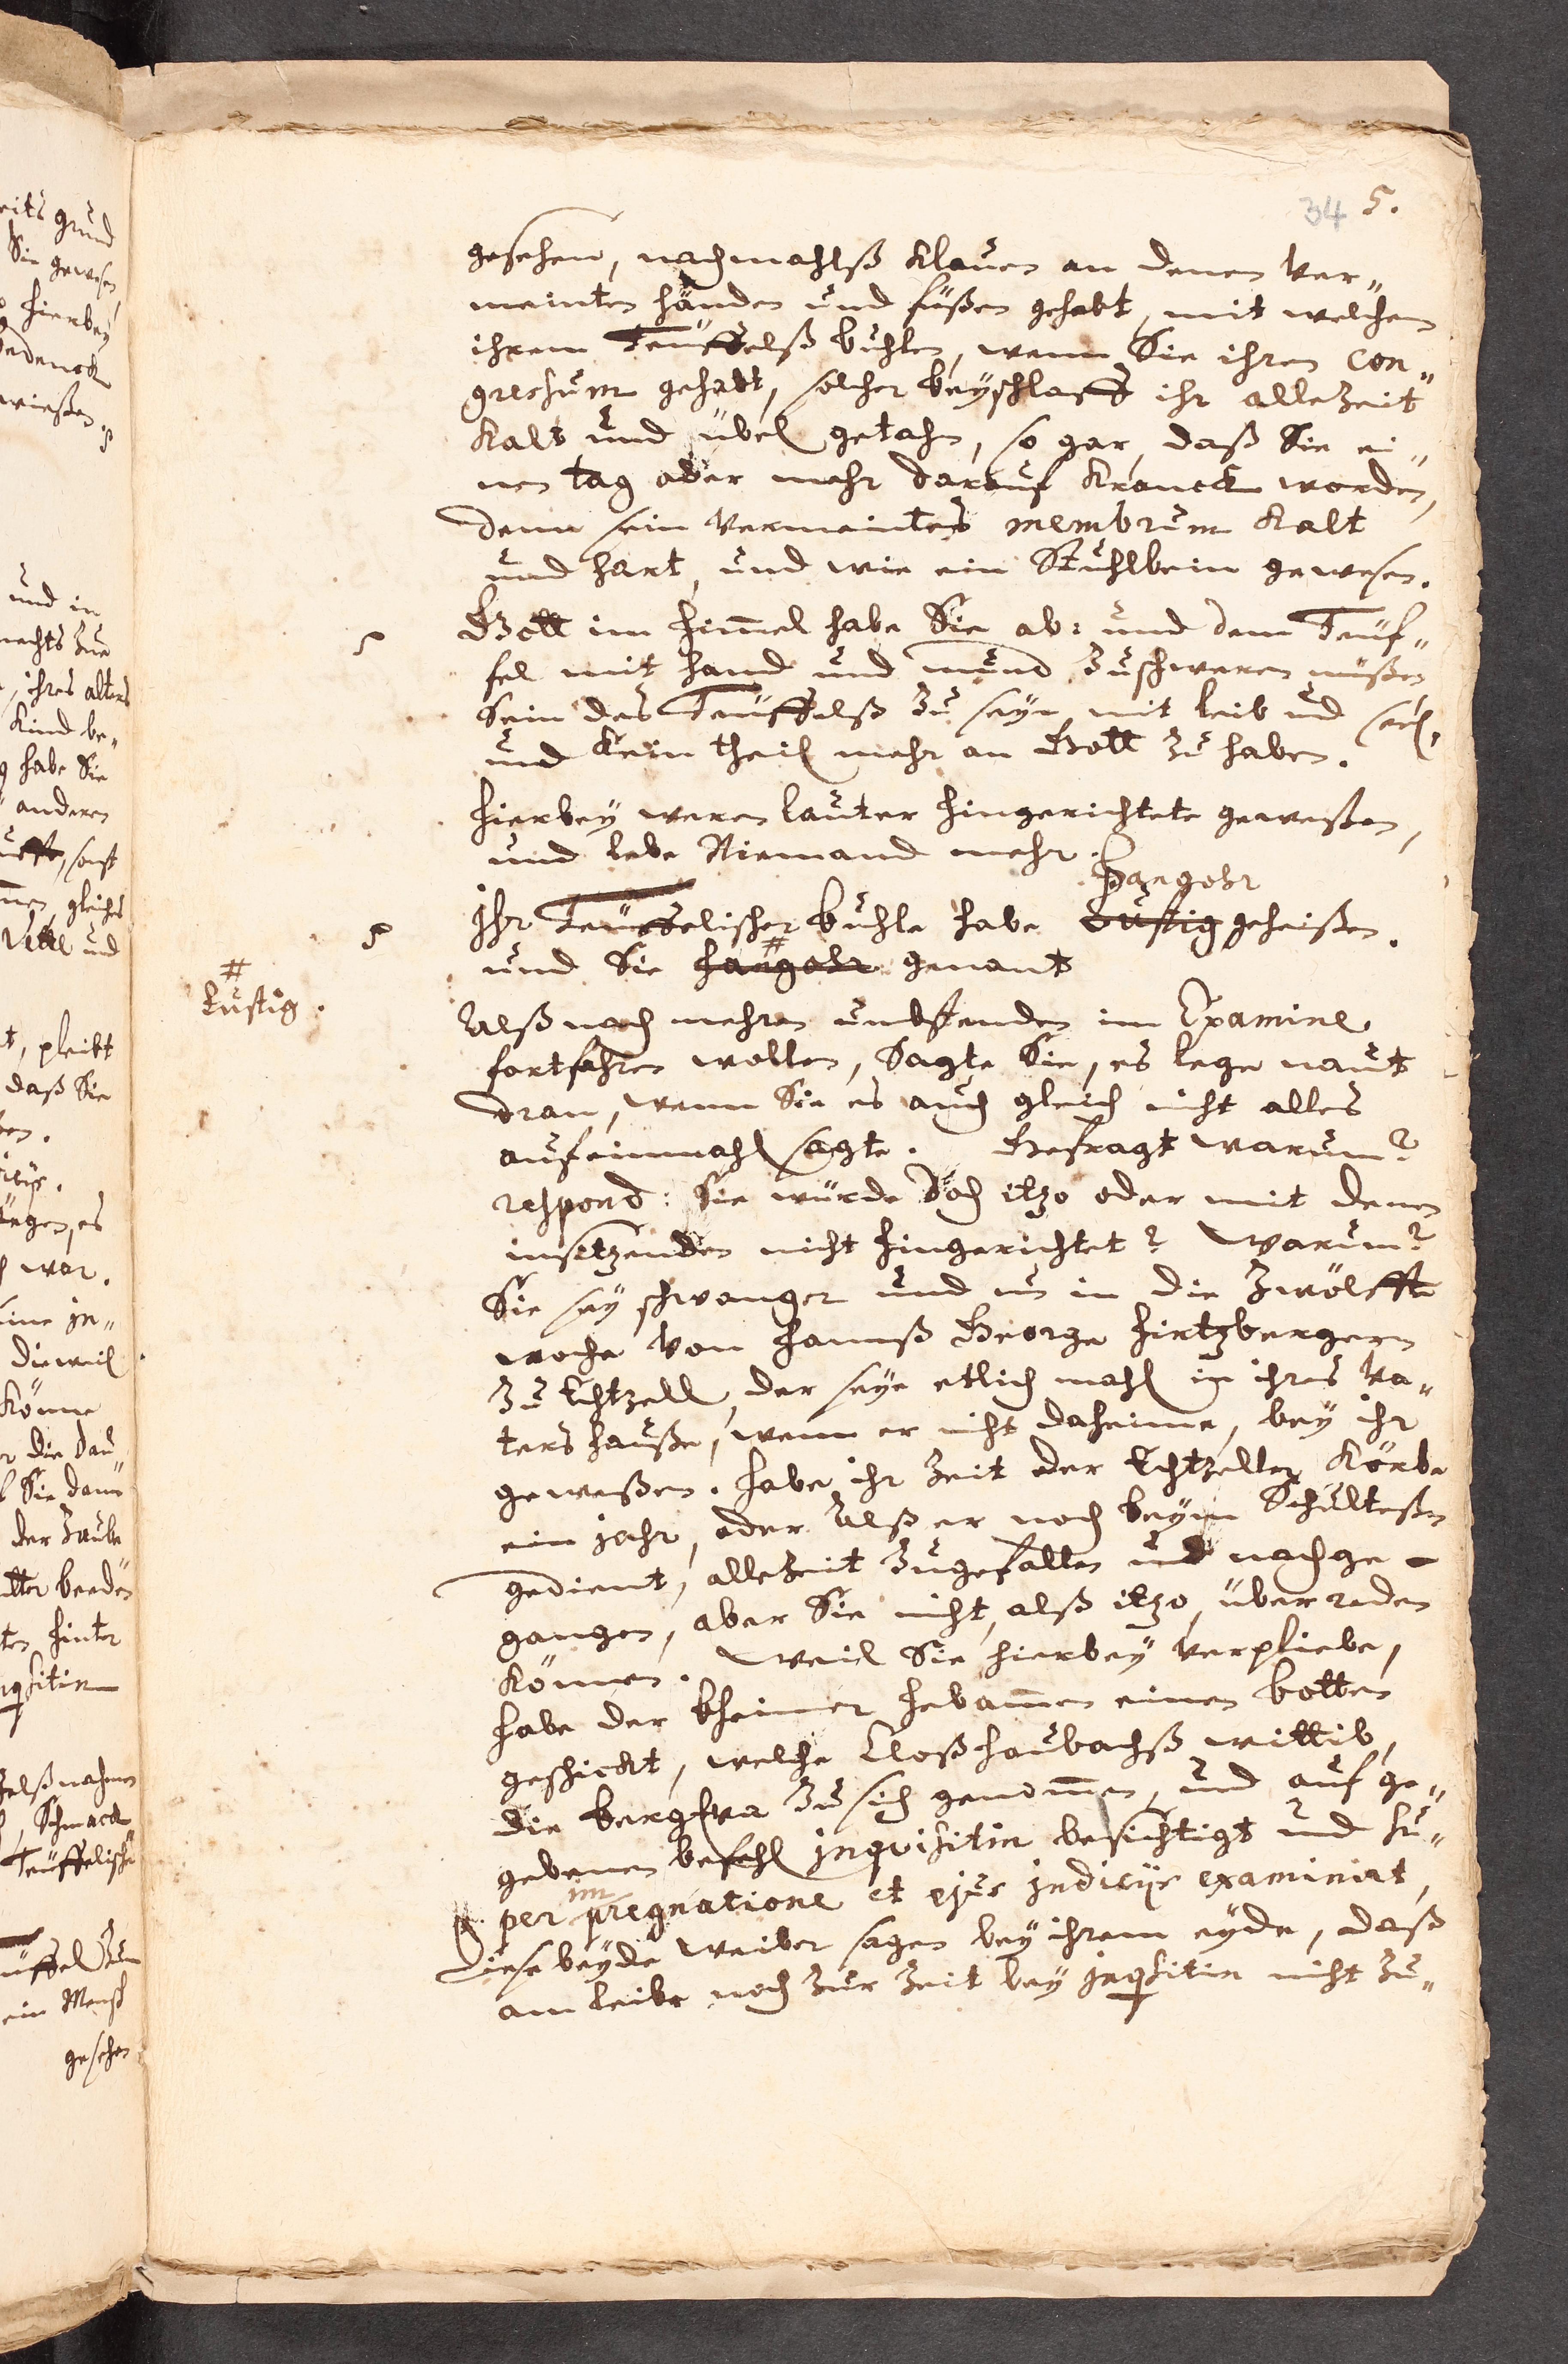 34 5.
gesehen, nachmahlß Klauen an denen ver„
meinten händen und füßen gehabt, mit welchem
ihrem Teuffelß buhlen, wenn Sie ihren con„
gressum gehabt, solcher beyschlaff ihr allezeit
Kalt und übel gethan, so gar, daß Sie ei„
nen tag oder mehr darauf Kranck worden,
denn sein vermeintes membrum Kalt
und hart, und wie ein Stuhlbein gewesen.
Gott im himmel habe Sie ab= und dem Teuf„
fel mit hand und mund Zuschweren müßen
Sein des Teuffelß Zu seyn mit leib und seel,
und kein theil mehr an Gott Zu haben.
hierbey weren lauter hingerichtete geweßen,
und lebe Niemand mehr.
hangohr
Ihr Teuffelischer buhle habe Lustig geheißen.
und Sie # hangohr genant
# Lustig.
Alß nach mehren umbstenden im Examine
fortfahren wollen, Sagte Sie, es lege naut
dran, wenn Sie es auch gleich nicht alles
auf einmahl sagte. Gefragt warum?
respond: Sie würde doch itzo oder mit denen
insitzenden nicht hingerichtet? Warum?
Sie sey schwanger und nu in die Zwölffte
woche von hannß George hirtzbergern
Zu Echtzell, der seye etlich mahl in ihres va„
ters hauße, wenn er nicht daheime, bey ihr
geweßen. habe ihr Zeit der Echtzeller Körbe
ein jahr, oder Alß er noch beym Schulteßen
gedient, allezeit Zugefallen und nachge-
gangen, aber Sie nicht, alß itzo, überreden
können. Weil Sie hierbey verpliebe,
habe der hebammen einen botten
geschickt, welche Cloß haubachß wittib,
die Zu sich genommen, und auf ge„
gebenen befehl inquisitin besichtigt und su„
per im pregnatione et ejus indicijs examinirt,
Diese beyde weiber sagen bey ihrem eyde, daß
am leibe noch Zur Zeit bey inqsitin nicht Zu„